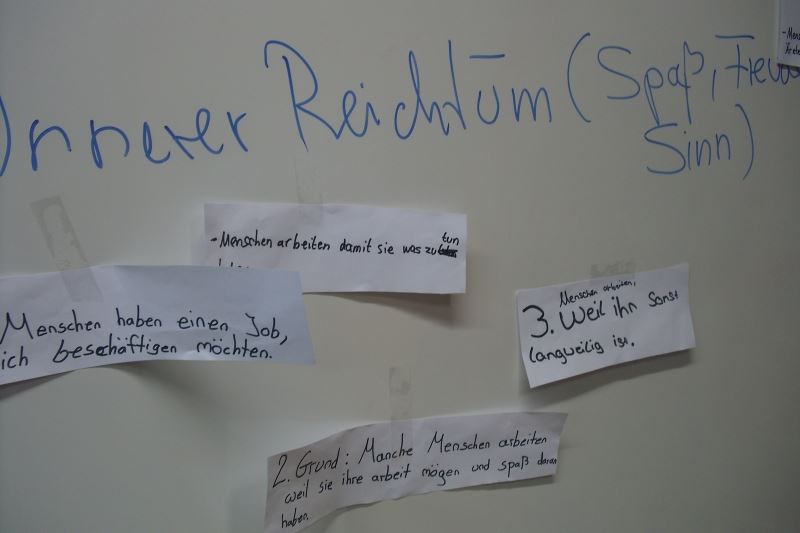 Innerer Reichtum (Spaß, Freude
Sinn)
- Mens
- Menschen arbeiten damit sie was zu tun
Menschen haben einen Job,
ich beschäftigen möchten.
Menschen arbeiten,
3. Weil ihn Sonst
langweilig ist.
2. Grund: Manche Menschen arbeiten
weil sie ihre arbeit mögen und spaß daran
haben.